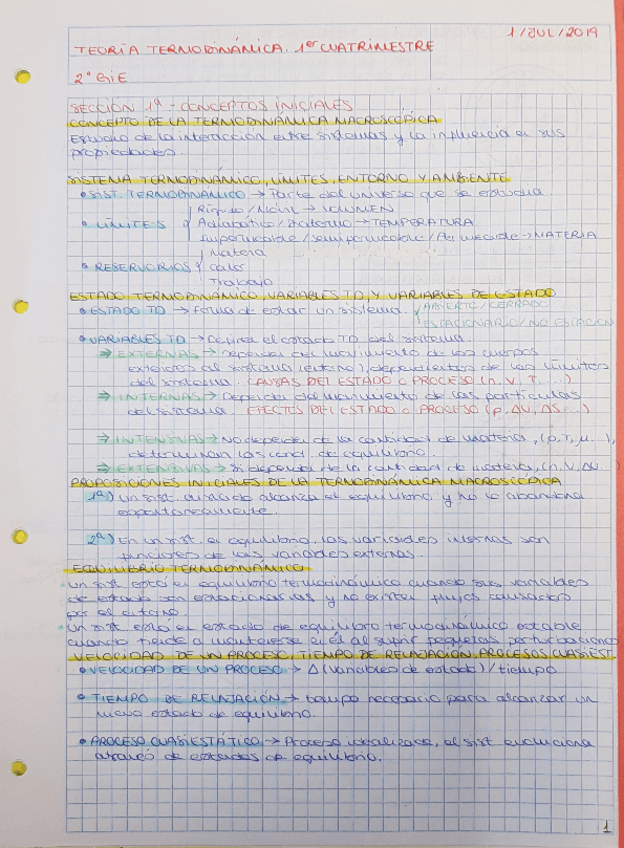 1/JUL/2019
TEORÍA TERMODINÁMICA. 1er CUATRIMESTRE
2º GIE
SECCIÓN 1ª - CONCEPTOS INICIALES
CONCEPTO DE LA TERMODINÁMICA MACROSCÓPICA
Estudio de la interacción entre sistemas y la influencia en sus
propiedades.
SISTEMA TERMODINÁMICO, LÍMITES, ENTORNO Y AMBIENTE
• SIST. TERMODINÁMICO → Parte del universo que se estudia
Rígido / Móvil → VOLUMEN
• LÍMITES Adiabático / Diatermo → TEMPERATURA
Impermeable / semipermeable / Permeable → MATERIA
Materia
• RESERVORIOS Calor
Trabajo
ESTADO TERMODINÁMICO, VARIABLES TD, Y VARIABLES DE ESTADO
• ESTADO TD → Forma de estar un sistema. ABIERTO / CERRADO
ESTACIONARIO / NO ESTACION
• VARIABLES TD → Define el estado TD del sistema.
⇒ EXTERNAS → Dependen del movimiento de los cuerpos
exteriores al sistema (entorno), dependientes de los límites
del sistema. CAUSAS DEL ESTADO o PROCESO (n, V, T, ...)
⇒ INTERNAS → Dependen del movimiento de las partículas
del sistema. EFECTOS DEL ESTADO o PROCESO (p, ΔU, ΔS...)
⇒ INTENSIVAS → No dependen de la cantidad de materia, (p, T, μ...),
determinan las cond. de equilibrio.
⇒ EXTENSIVAS → Sí dependen de la cantidad de materia, (n, V, ΔU...)
PROPOSICIONES INICIALES DE LA TERMODINÁMICA MACROSCÓPICA
1ª) Un sist. aislado alcanza el equilibrio y no lo abandona
espontáneamente.
2ª) En un sist. en equilibrio, las variables internas son
funciones de las variables externas.
EQUILIBRIO TERMODINÁMICO
Un sist. está en equilibrio termodinámico cuando sus variables
de estado son estacionarias y no existen flujos causados
por el entorno.
Un sist. está en estado de equilibrio termodinámico estable
cuando tiende a mantenerse en él al sufrir pequeñas perturbaciones
VELOCIDAD DE UN PROCESO, TIEMPO DE RELAJACIÓN PROCESOS CUASIEST
• VELOCIDAD DE UN PROCESO → Δ(variables de estado) / tiempo
• TIEMPO DE RELAJACIÓN → tiempo necesario para alcanzar un
nuevo estado de equilibrio.
• PROCESO CUASIESTÁTICO → Proceso idealizado, el sist evoluciona
a través de estados de equilibrio.
1